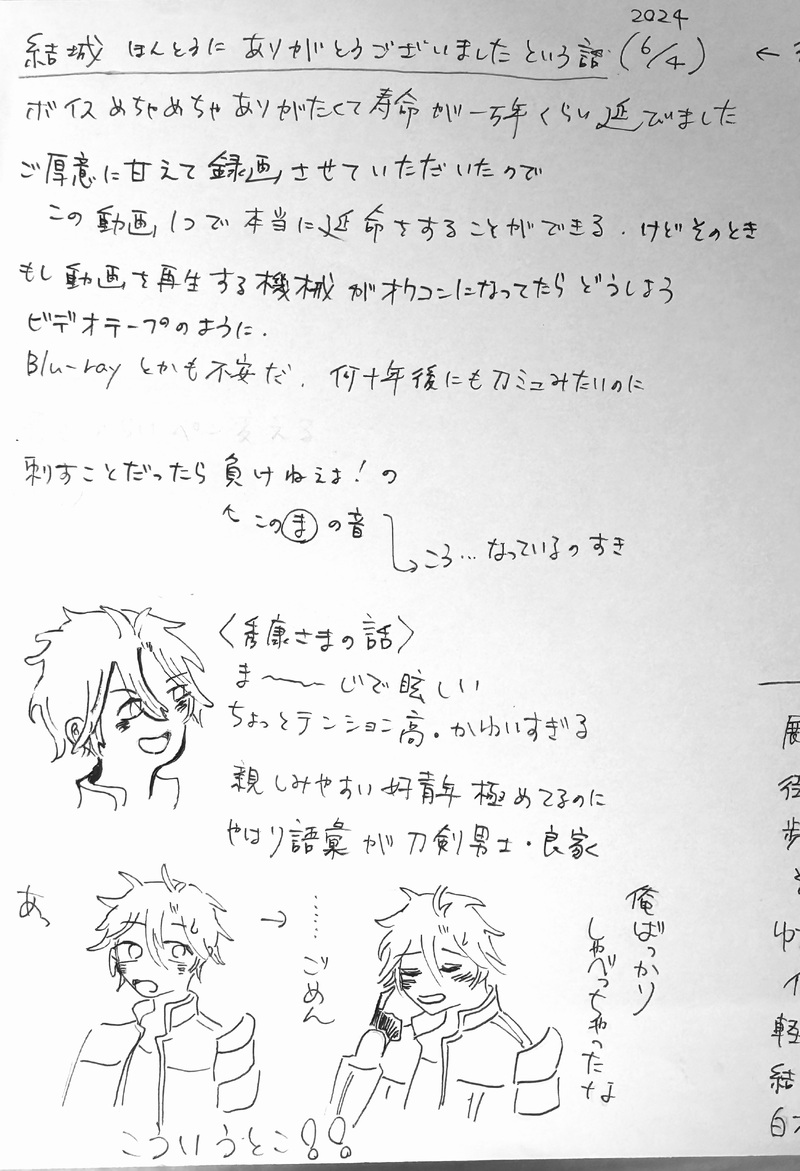 2024
結城 ほんとうに ありがとうございましたという話 (6/4) ←
ボイス めちゃめちゃ ありがたくて 寿命が 一万年くらい 延びました
ご厚意に甘えて 録画させていただいたので
この動画1つで 本当に延命をすることができる。けどそのとき
もし動画を再生する機械がオワコンになってたらどうしよう
ビデオテープのように。
Blu-rayとかも不安だ。何十年後にも刀ミュみたいのに
刺すことだったら負けねえよ!の
↑この ま の音
ころ…なっているのすき
〈秀康さまの話〉
ま〜〜じで眩しい
ちょっとテンション高。かわいすぎる
親しみやすい好青年極めてるのに
やはり語彙が刀剣男士・良家
あっ
→
……ごめん
俺ばっかり
しゃべっちゃったな
こういうとこ!!
歩
ゆ
軽
結
白